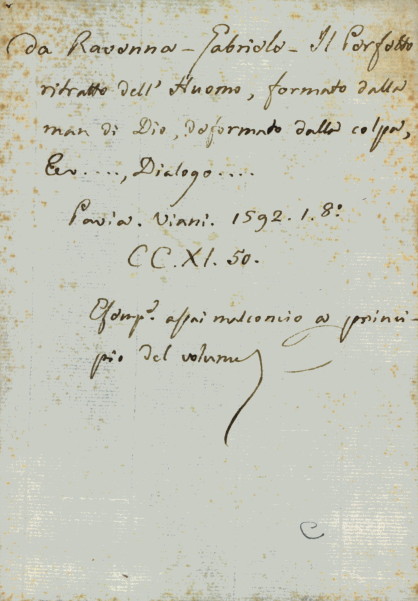 Da Ravenna - Gabriele - Il Perfetto
ritratto dell' Huomo, formato dalla
man di Dio, deformato dalla colpa,
Ec...., Dialogo....
Pavia. Viani. 1592. 1. 8:
CC. XI. 50.
Esemp. assai malconcio a princi-
pio del volume
C